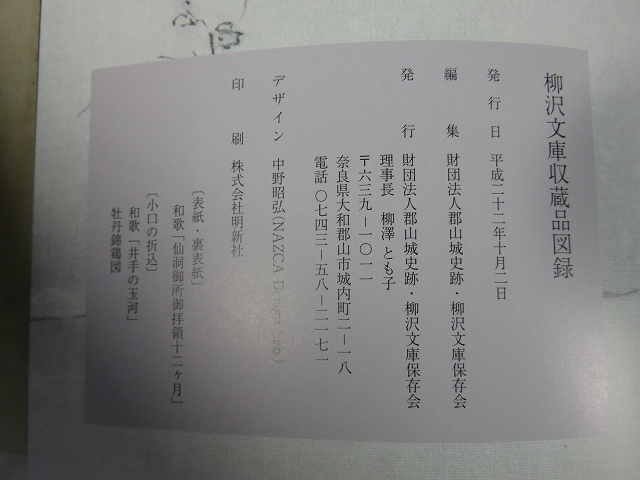 柳沢文庫収蔵品図録
発行日 平成二十二年十月二日
編集 財団法人郡山城史跡・柳沢文庫保存会
発行 財団法人郡山城史跡・柳沢文庫保存会
理事長 柳澤とも子
〒六三九―一〇一一
奈良県大和郡山市城内町二―一八
電話 〇七四三―五八―二一七一
デザイン 中野昭弘(NAZCA Design Lab)
印刷 株式会社明新社
〔表紙・裏表紙〕
和歌「仙洞御所御拝領十二ヶ月」
〔小口の折込〕
和歌「井手の玉河」
牡丹錦鶏図